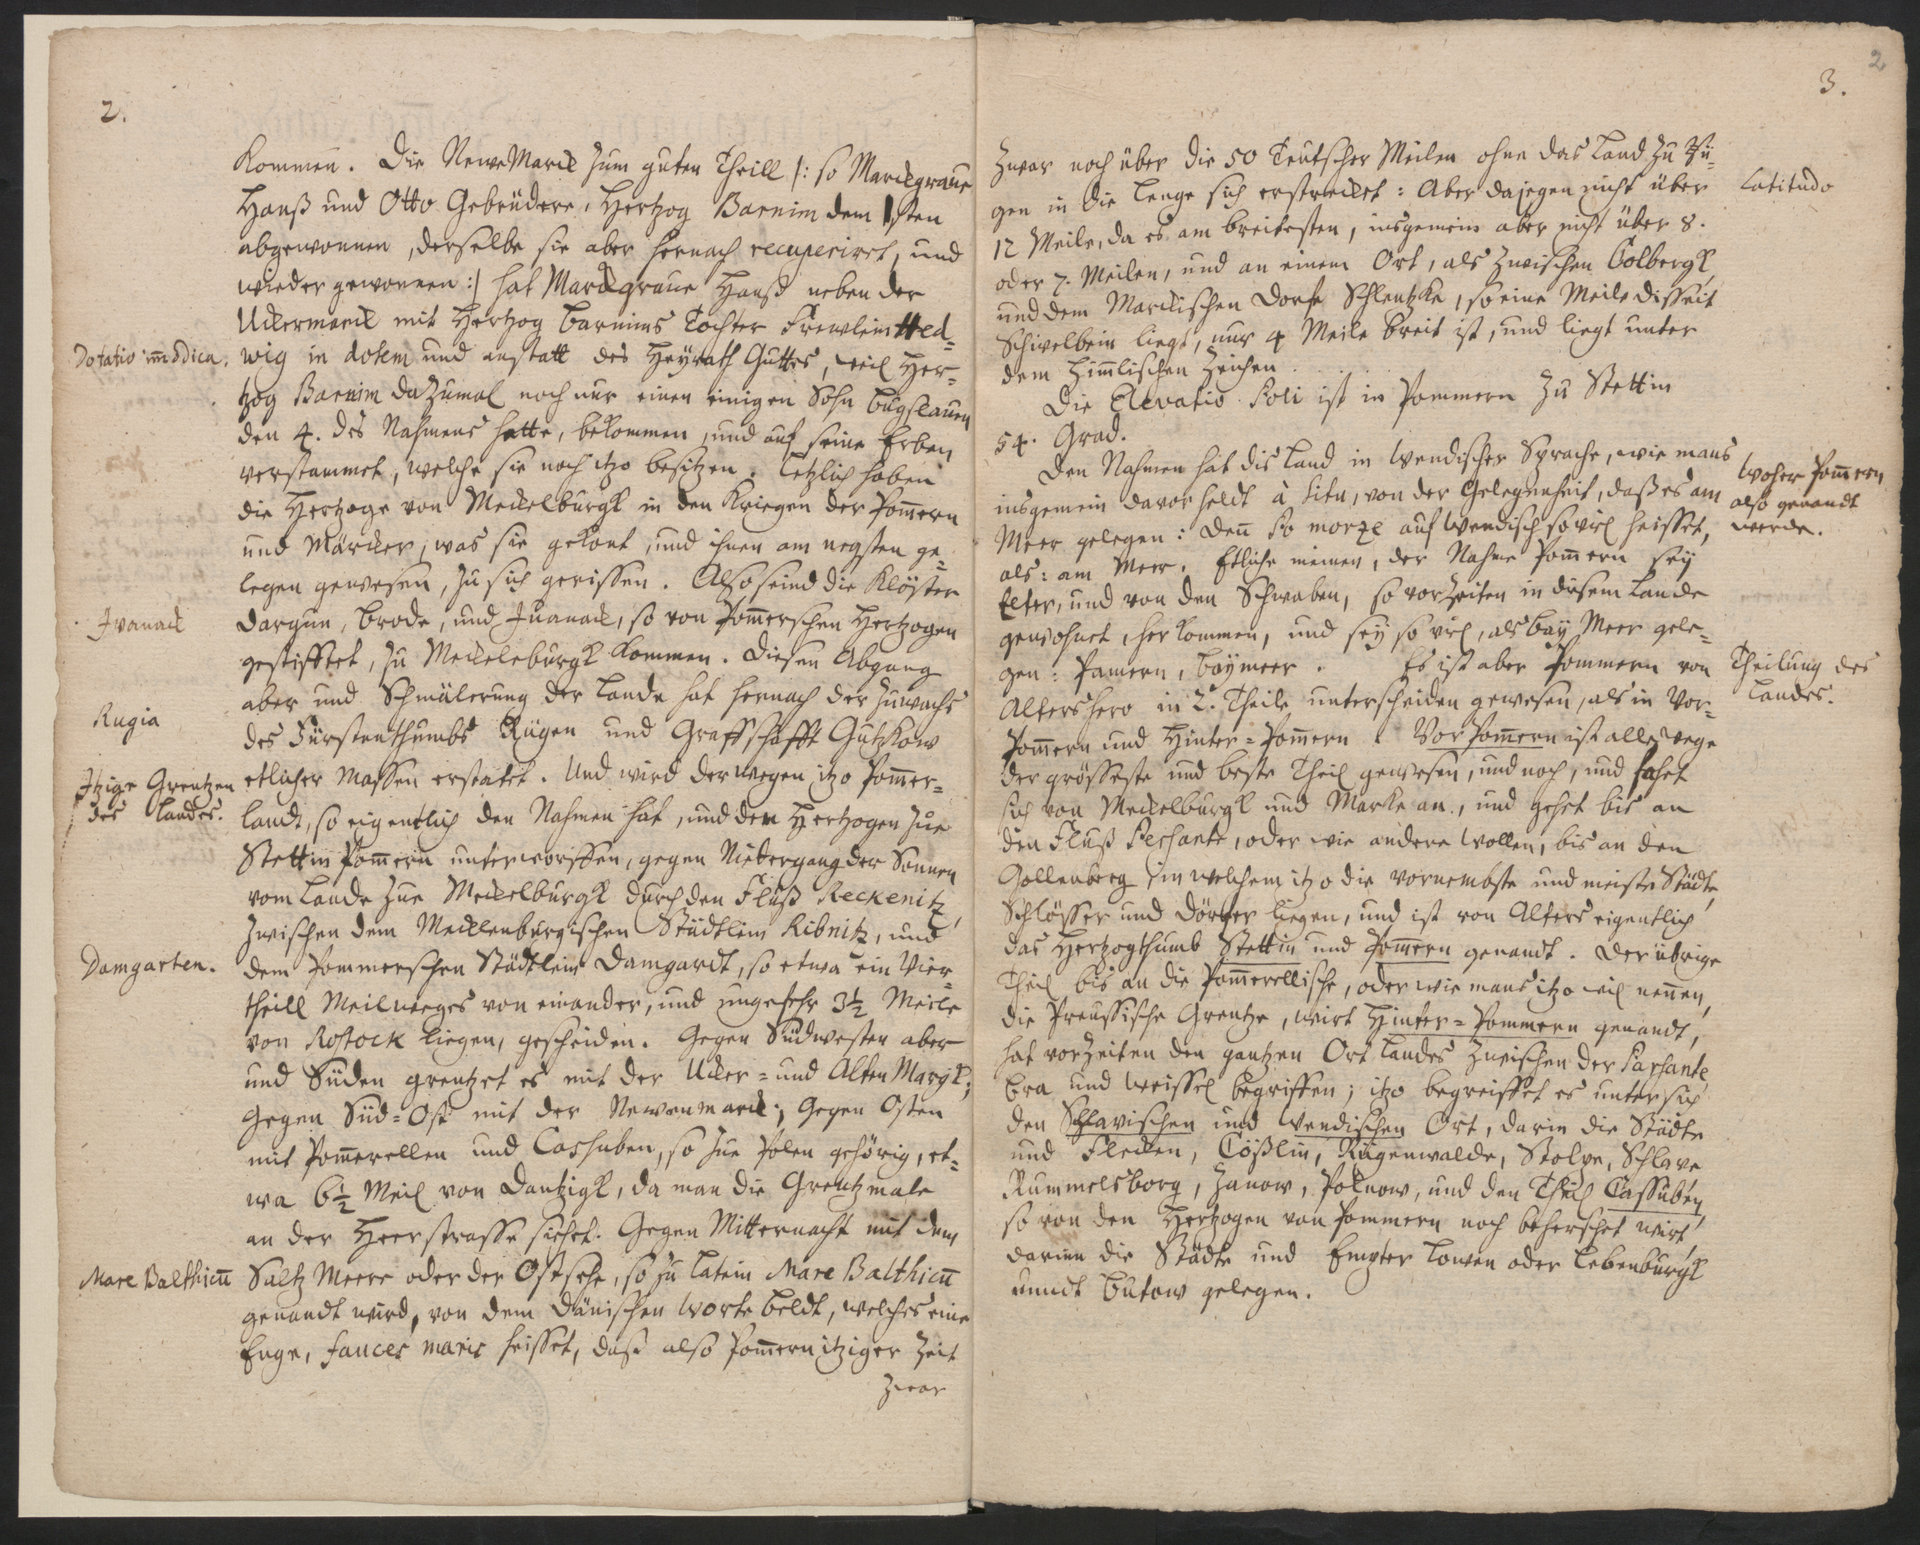 2.
Kommen. Die NeweMarck zum guten Theill /: so Marckgraue
Hanß und Otto Gebrüdere, Hertzog Barnim dem Isten
abgewonnen, derselbe sie aber hernach recuperirct, und
wieder gewonnen :/ hat Marckgraue Hanß neben der
Uckermarck mit Hertzog Barnims Tochter Frewlein Hed-
Dotatio
wig in dotem und anstatt des Heyrath Guttes, weil Her-
tzog Barnim dazumal noch nur einen einigen Sohn Bugslauen
den 4. des Nahmens hatte, bekommen, und auf seine Erben
verstammet, welche sie noch itzo besitzen. Letzlich haben
die Hertzoge von Meckelburgk in den Kriegen der Pom̄ern
und Märcker, was sie gekont, und ihnen am negsten ge-
legen gewesen, zu sich gerissen. Also seind die Klöster
Ivanack
Dargun, Brode, und Iuanack, so von Pom̄erschen Hertzogen
gestifftet, zu Meckeleburgk kommen. Diesen Abgang
aber und Schmälerung der Lande hat hernach der Zuwachs
Rugia
des Fürstenthumbs Rügen und Graffschafft Gutzkow
Itzige Grentzen
des Landes.
etlicher Massen erstatet. Und wird derwegen itzo Pom̄er-
landt, so eigentlich den Nahmen hat, und den Hertzogen zue
Stettin Pom̄ern unterworffen, gegen Niedergang der Sonnen
vom Lande zue Meckelburgk durch den Fluß Reckenitz,
zwischen dem Mecklenburgischen Städtlein Ribnitz, und
Damgarten.
dem Pommerschen Städtlein Damgardt, so etwa ein Vier-
theill Meilweges von einander, und ungefehr 3½ Meile
von Rostock liegen, gescheiden. Gegen Südwesten aber
und Süden grentzet es mit der Ucker- und Alten Margk;
Gegen Süd-Ost mit der Newenmarck; Gegen Osten
mit Pom̄erellen und Cashuben, so zue Polen gehörig, et-
wa 6½ Meil von Dantzigk, da man die Grentzmale
an der Heerstrasse siehet. Gegen Mitternacht mit dem
Mare Balthicū
Saltz Meere oder der Ostsehe, so zu Latein Mare Balthicū
genandt wird, von dem Dänischen Worte Beldt, welches eine
Enge, fauces maris heisset, daß also Pom̄ern itziger Zeit
zwar
2
3.
zwar noch über die 50 Teutscher Meilen ohne das Land zu Rü-
gen in die Lenge sich erstrecket: Aber dajegen nicht über
Latitudo
12 Meile, da es am breitesten, insgemein aber nicht über 8.
oder 7. Meilen, und an einem Ort, als zwischen Colbergk
und dem Marckischen Dorfe Schleutzke, so eine Meile disseit
Schivelbein liegt, nur 4 Meile breit ist, und liegt unter
dem Him̄lischen Zeichen
Die Elevatio Poli ist in Pommern zu Stettin
54. Grad.
Den Nahmen hat dis Land in Wendischer Sprache, wie mans
Woher Pom̄ern
also genandt
werde.
insgemein davor heldt à situ, von der Gelegenheit, daß es am
Meer gelegen: Den̄ Po morze auf Wendisch so viel heisset,
als: am Meer. Etliche meinen, der Nahme Pom̄ern sey
Elter, und von den Schwaben, so vorZeiten in diesem Lande
gewohnet, her kommen, und sey so viel, als bay Meer gele-
gen: Pamern, baymeer. Es ist aber Pommern von
Theilung des
Landes.
Alters hero in 2. Theile unterscheiden gewesen, als in Vor-
Pom̄ern und Hinter-Pom̄ern. VorPom̄ern ist allewege
der grösseste und beste Theil gewesen, und noch, und fahet
sich von Meckelburgk und Marke an, und gehet bis an
den Fluß Pershante, oder wie andere wollen, bis an den
Gollenberg in welchem itzo die vornembste und meiste Städte
Schlösser und Dörfer liegen, und ist von Alters eigentlich
das Hertzogthumb Stettin und Pom̄ern genandt. Der übrige
Theil bis an die Pom̄erellische, oder wie mans itzo wil nennen,
die Preussische Grentze, wirt Hinter-Pommern genandt,
hat vorZeiten den gantzen Ort Landes zwischen der Parsante
Bra und Weissel begriffen; itzo begreiffet es unter sich
den Schlavischen und Wendischen Ort, darin die Städte
und Flecken, Cößlin, Rügenwalde, Stolpe, Schlawe
Rummelsborg, Zanow, Polnow, und den Theil Cassuben,
so von den Hertzogen von Pommern noch beherschet wirt,
darinn die Städte und Empter Lowen oder Lebenburgk
unndt Butow gelegen.